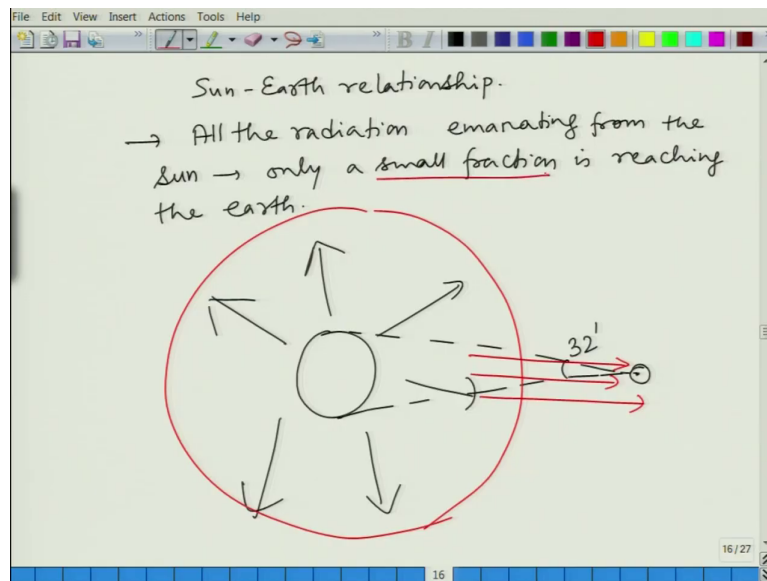 File Edit View Insert Actions Tools Help
» » B I »
Sun - Earth relationship.
→ All the radiation emanating from the
sun → only a small fraction is reaching
the earth.
32'
16/27
16